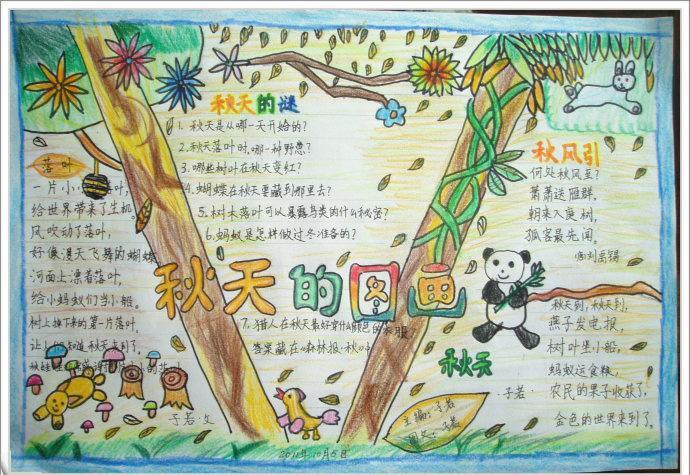 秋天的图画
落叶
一片小小 叶,
给世界带来了生机。
风吹动了落叶,
好像漫天飞舞的蝴蝶
河面上漂着落叶,
给小蚂蚁们当小船。
树上 下来的第一片落叶,
让人们知道秋天来到了。
子若·文
秋天的谜
1. 秋天是从哪一天开始的?
2.秋天落叶时,哪一种野兽?
3.哪些树叶在秋天变红?
4.蝴蝶在秋天要藏到那里去?
5.树木落叶可以暴露鸟类的什么秘密?
6.蚂蚁是怎样做过冬准备的?
7.猎人在秋天最好穿什么颜色的衣服
答案藏在《森林报·秋》
秋风引
何处秋风至?
萧萧送雁群,
朝来入庭树,
孤客最先闻。
刘禹锡
秋天
·子若·
秋天到,秋天到,
燕子发电报,
树叶坐小船,
蚂蚁运食粮,
农民的果子收获了,
金色的世界来到了。
主编:子若
图文:子若
2011年10月5日